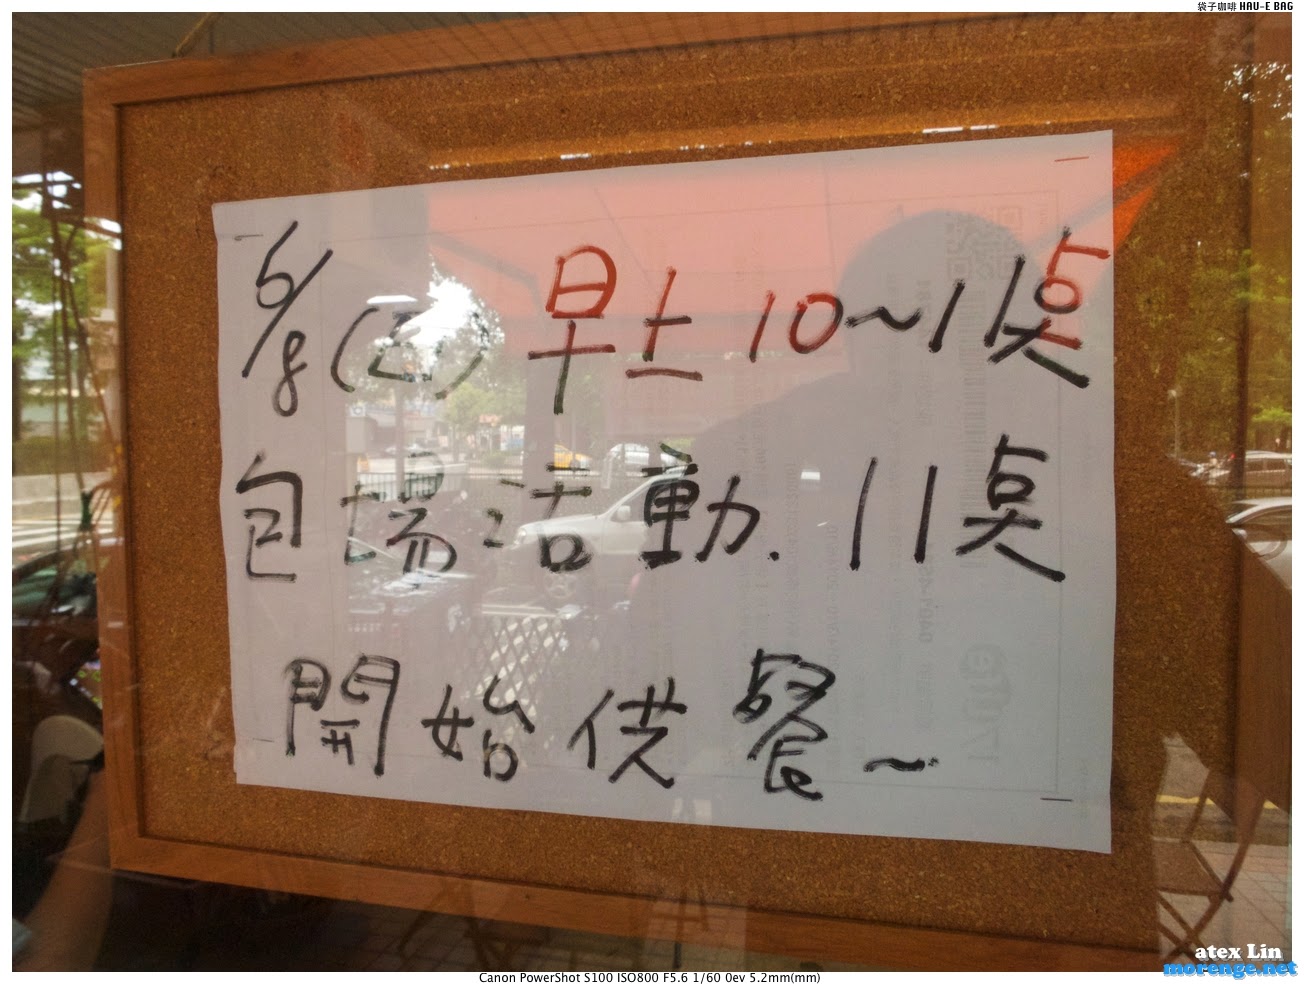 袋子咖啡 HAU-E BAG
6/8(五)早上10~11点
包場活動.11点
開始供餐~
atex Lin
morenge.net
Canon PowerShot S100 ISO800 F5.6 1/60 0ev 5.2mm(mm)